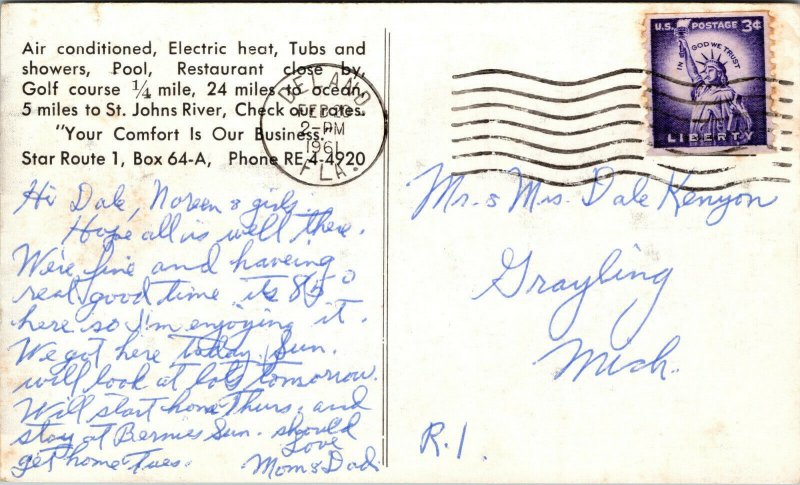 Air conditioned, Electric heat, Tubs and
showers, Pool, Restaurant close by,
Golf course ¼ mile, 24 miles to ocean,
5 miles to St. Johns River, Check our rates.
"Your Comfort Is Our Business."
Star Route 1, Box 64-A, Phone RE 4-4920
DELAND
2-PM
1961
FLA.
U.S. POSTAGE 3¢
IN GOD WE TRUST
LIBERTY
Hi Dale, Noreen & girls
Hope all is well there.
We're fine and haveing
real good time its 85°
here so I'm enjoying it.
We got here today Sun.
will look at lots tomorrow.
Will start home Thurs. and
stay at Bernies Sun. should
get home Tues.
Love
Mom & Dad
Mr. & Mrs Dale Kenyon
Grayling
Mich.
R.1.